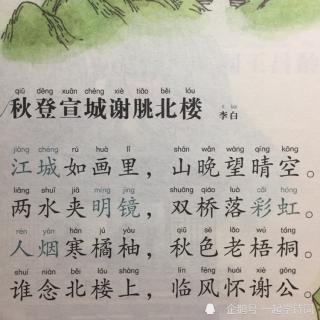 qiū dēng xuān chéng xiè tiǎo běi lóu
秋登宣城谢朓北楼 李白
jiāng chéng rú huà lǐ shān wǎn wàng qíng kōng
江城如画里，山晚望晴空。
liǎng shuǐ jiā míng jìng shuāng qiáo luò cǎi hóng
两水夹明镜，双桥落彩虹。
rén yān hán jú yòu qiū sè lǎo wú tóng
人烟寒橘柚，秋色老梧桐。
shuí niàn běi lóu shàng lín fēng huái xiè gōng
谁念北楼上，临风怀谢公。
企鹅号 一起学诗词